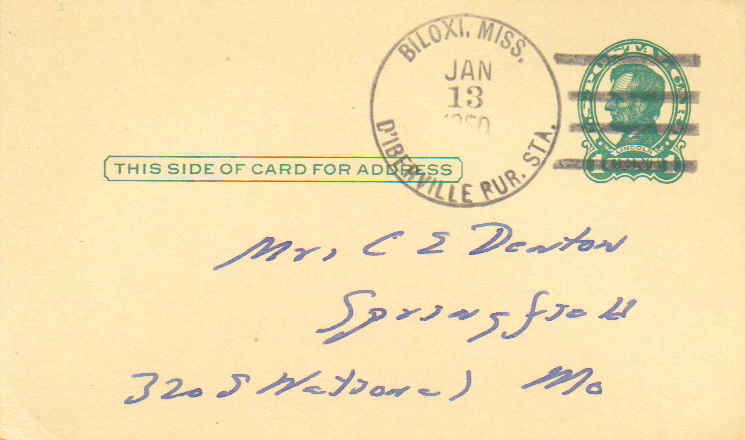 BILOXI, MISS.
JAN
13
1950
D'IBERVILLE RUR. STA.
LINCOLN
1 CENT 1
THIS SIDE OF CARD FOR ADDRESS
Mr, C E Denton
Springfield
320 S National Mo